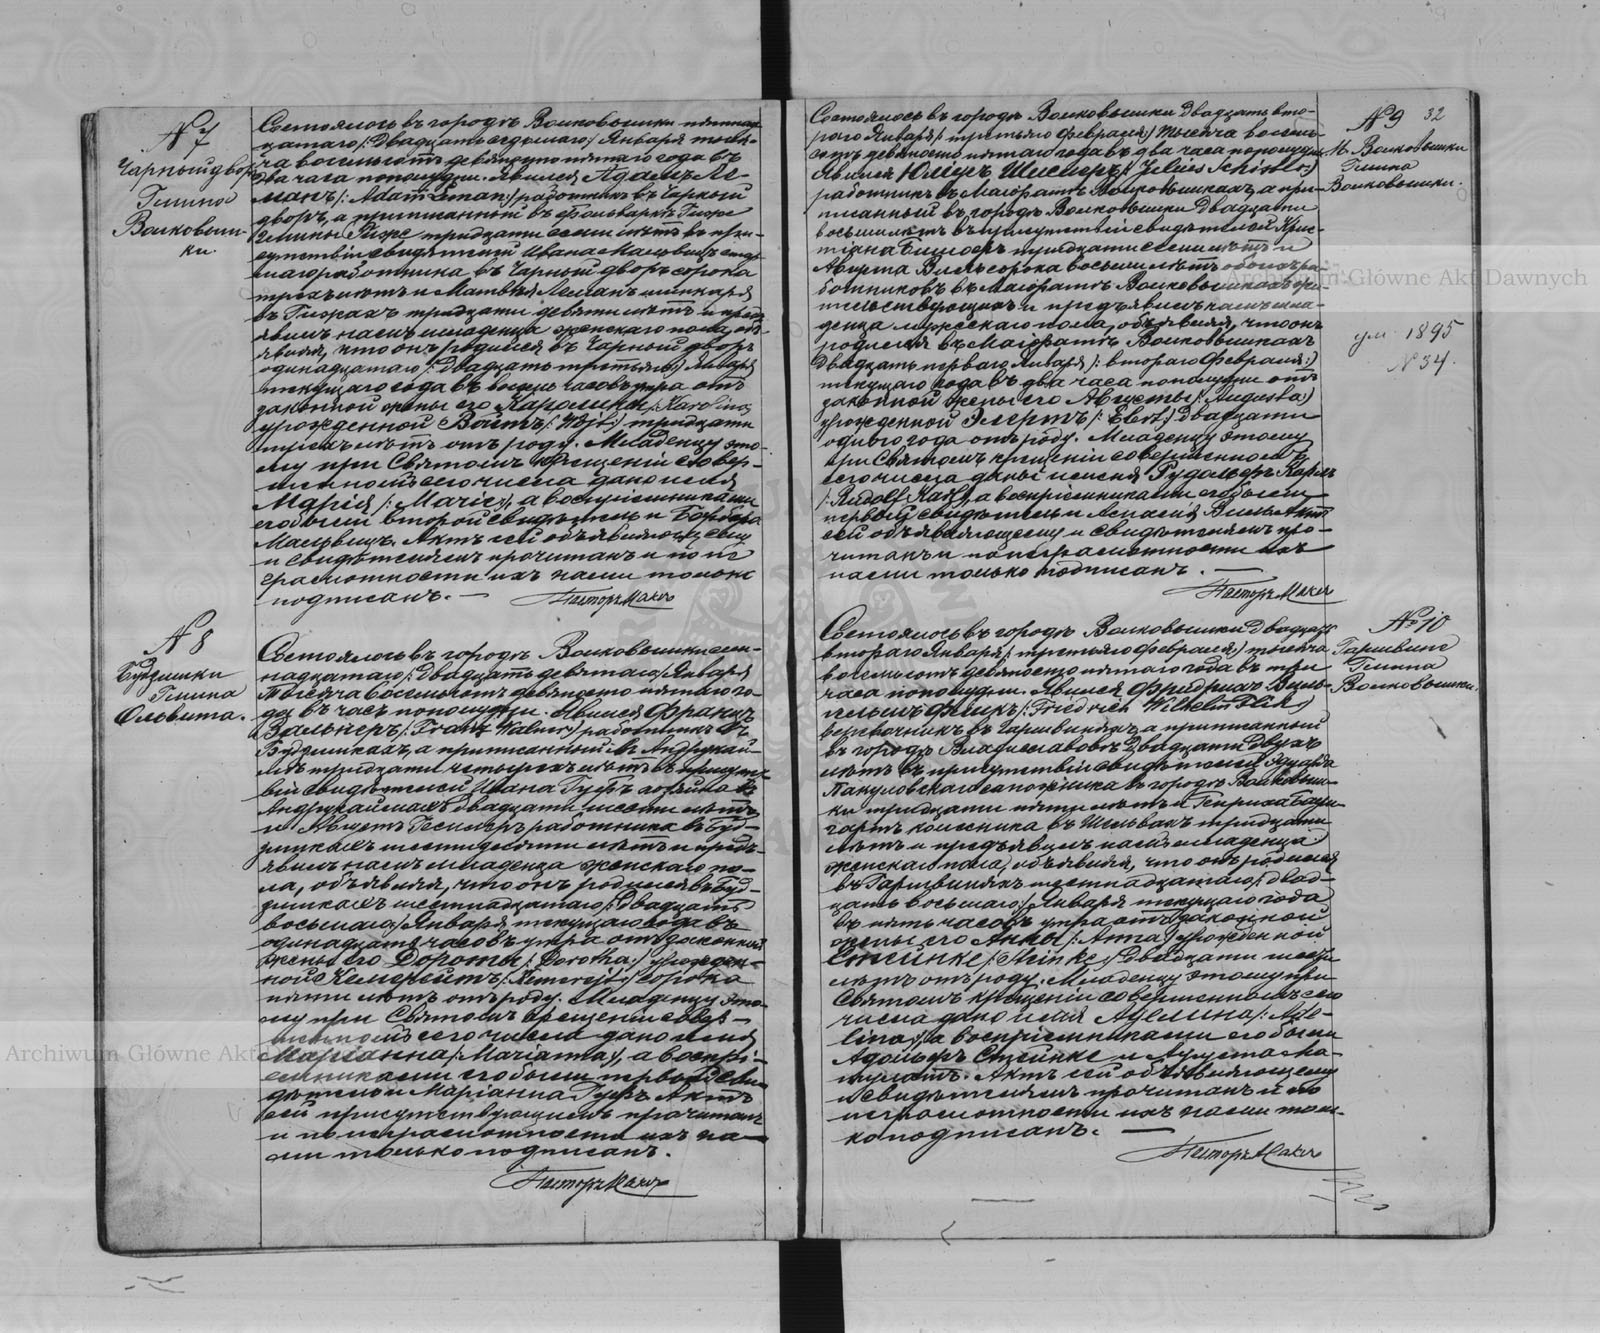 № 7
Чарныйдвор
Гмина
Волковыш-
ки.
Состоялось въ городѣ Волковышки пятнад-
цатаго /: Двадцать седьмаго :/ Января тыся-
ча восемьсотъ девяносто пятаго года въ
два часа пополудни. Явился Адамъ Ле-
манъ /: Adam Leman :/ работникъ въ Чарный
дворѣ, а приписанный въ фольваркѣ
Гмины тридцати семи лѣтъ въ при-
сутствіи свидѣтелей Ивана Мальвицъ
работника въ Чарный дворѣ сорока
трехъ лѣтъ и Матвѣя Леманъ
въ тридцати девяти лѣтъ и предъ-
явилъ намъ младенца женскаго пола, объ-
являя, что онъ родился въ Чарный дворѣ
одинадцатаго /: Двадцать третьяго :/ Января
текущаго года въ часовъ утра отъ
законной жены его Каролины /: Karolina
урожденной Войтъ /: Wojt :/ тридцати
трехъ лѣтъ отъ роду. Младенцу это-
му при Святомъ крещеніи совер-
шенномъ сего числа дано имя
Марія /: Marie :/, а воспріемниками
его были второй свидѣтель и Барбара
Мальвицъ. Актъ сей объявляющему
и свидѣтелямъ прочитанъ и по не-
грамотности ихъ нами только
подписанъ. —
Пасторъ Махъ
№ 8
Будвишки
Гмина
Ольвита.
Состоялось въ городѣ Волковышки сем-
надцатаго /: Двадцать девятаго :/ Января
Тысяча восемьсотъ девяносто пятаго го-
да въ часъ пополудни. Явился Францъ
Вальнеръ /: Franz Walner :/ работникъ въ
а приписанный въ Андрукай-
мѣ тридцати четырехъ лѣтъ въ присутст-
віи свидѣтелей Ивана Гуфъ хозяина въ
Андрукаймахъ двадцати шести лѣтъ
и Августъ работника въ Буд-
шести десяти лѣтъ и предъ-
явилъ намъ младенца женскаго по-
ла, объявляя, что онъ родился въ Буд-
шестнадцатаго /: двадцать
восьмаго :/ Января текущаго года въ
одинадцать часовъ утра отъ законной
жены его Дороты /: Dorotha :/ урожден-
ной сорока
пяти лѣтъ отъ роду. Младенцу это-
му при Святомъ крещеніи совер-
шенномъ сего числа дано имя
Маріанна /: Marianna :/, а воспрі-
емниками его были первый сви-
дѣтель и Маріанна Гуфъ. Актъ
сей присутствующимъ прочитанъ
и по неграмотности ихъ на-
ми только подписанъ.
Пасторъ Махъ
32
№ 9
М. Волковышки
Гмина
Волковышки.
ум. 1895
№ 34.
Состоялось въ городѣ Волковышки Двадцать вто-
раго Января /: третьяго Февраля :/ тысяча восемь-
сотъ девяносто пятаго года въ два часа пополудни
Явился Юліусъ Шислеръ /: Julius Schisler :/
работникъ въ Маіоратѣ Волковышкахъ, а при-
писанный въ городѣ Волковышки Двадцати
восьми лѣтъ въ присутствіи свидѣтелей Хрис-
тіана тридцати семи лѣтъ и
Августа Виль сорока восьми лѣтъ обоихъ ра-
ботниковъ въ Маіоратѣ Волковышкахъ жи-
тельствующихъ и предъявилъ намъ мла-
денца мужескаго пола, объявляя, что онъ
родился въ Маіоратѣ Волковышкахъ
Двадцать перваго Января /: втораго Февраля :/
текущаго года въ два часа пополудни отъ
законной жены его Августы /: Augusta :/
урожденной Элертъ /: Elert :/ двадцати
одного года отъ роду. Младенцу этому
при Святомъ крещеніи совершенномъ
сего числа даны имена Рудольфъ Карлъ
/: Rudolf Karl :/, а воспріемниками его были
первый свидѣтель и Амалія Виль. Актъ
сей объявляющему и свидѣтелямъ про-
читанъ и по неграмотности ихъ
нами только подписанъ. —
Пасторъ Махъ
№ 10
Гаршвине
Гмина
Волковышки.
Состоялось въ городѣ Волковышки двадцать
втораго Января /: третьяго Февраля :/ тысяча
восемьсотъ девяносто пятаго года въ три
часа пополудни. Явился Фридрихъ Виль-
гельмъ Фликъ /: Friedrich Wilhelm Flik :/
веревочникъ въ Гаршвиняхъ, а приписанный
въ городѣ Владиславовѣ Двадцати двухъ
лѣтъ въ присутствіи свидѣтелей Эдуарда
сапожника въ городѣ Волковыш-
ки тридцати пяти лѣтъ и Генриха Баум-
гартъ колесника въ тридцати
лѣтъ и предъявилъ намъ младенца
женскаго пола, объявляя, что онъ родился
въ Гаршвиняхъ шестнадцатаго /: двад-
цать восьмаго :/ Января текущаго года
въ пять часовъ утра отъ законной
жены его Анны /: Anna :/ урожденной
Стеинке /: Steinke :/ Двадцати шести
лѣтъ отъ роду. Младенцу этому при
Святомъ крещеніи совершенномъ сего
числа дано имя Аделина /: Ade-
lina :/, а воспріемниками его были
Адольфъ Стеинке и Августа Ма-
тулатъ. Актъ сей объявляющему
и свидѣтелямъ прочитанъ и по
неграмотности ихъ нами толь-
ко подписанъ. —
Пасторъ Махъ
Archiwum Główne Akt Dawnych
Archiwum Główne Akt